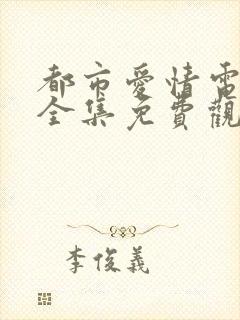 都市愛情電
全集免費觀
李俊義